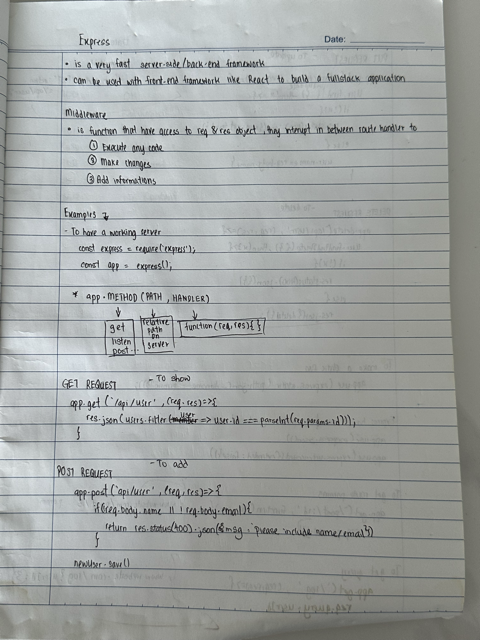 Express
Date:
• is a very fast server-side/back-end framework
• can be used with front-end framework like React to build a fullstack application
Middleware
• is function that have access to req & res object, they interupt in between route handler to
① Execute any code
② Make changes
③ Add informations
Examples ↓
- To have a working server
const express = require('express');
const app = express();
* app.METHOD (PATH, HANDLER)
get
listen
post..
relative
path
on
server
function(req,res){ }
GET REQUEST - To show
app.get ('/api/user', (req.res)=>{
res.json(users.filter(user => user.id === parseInt(req.params.id)));
}
POST REQUEST - To add
app.post ('api/user', (req,res)=>{
if(!req.body.name || !req.body.email){
return res.status(400).json({msg: 'please include name/email'})
}
newUser.save()